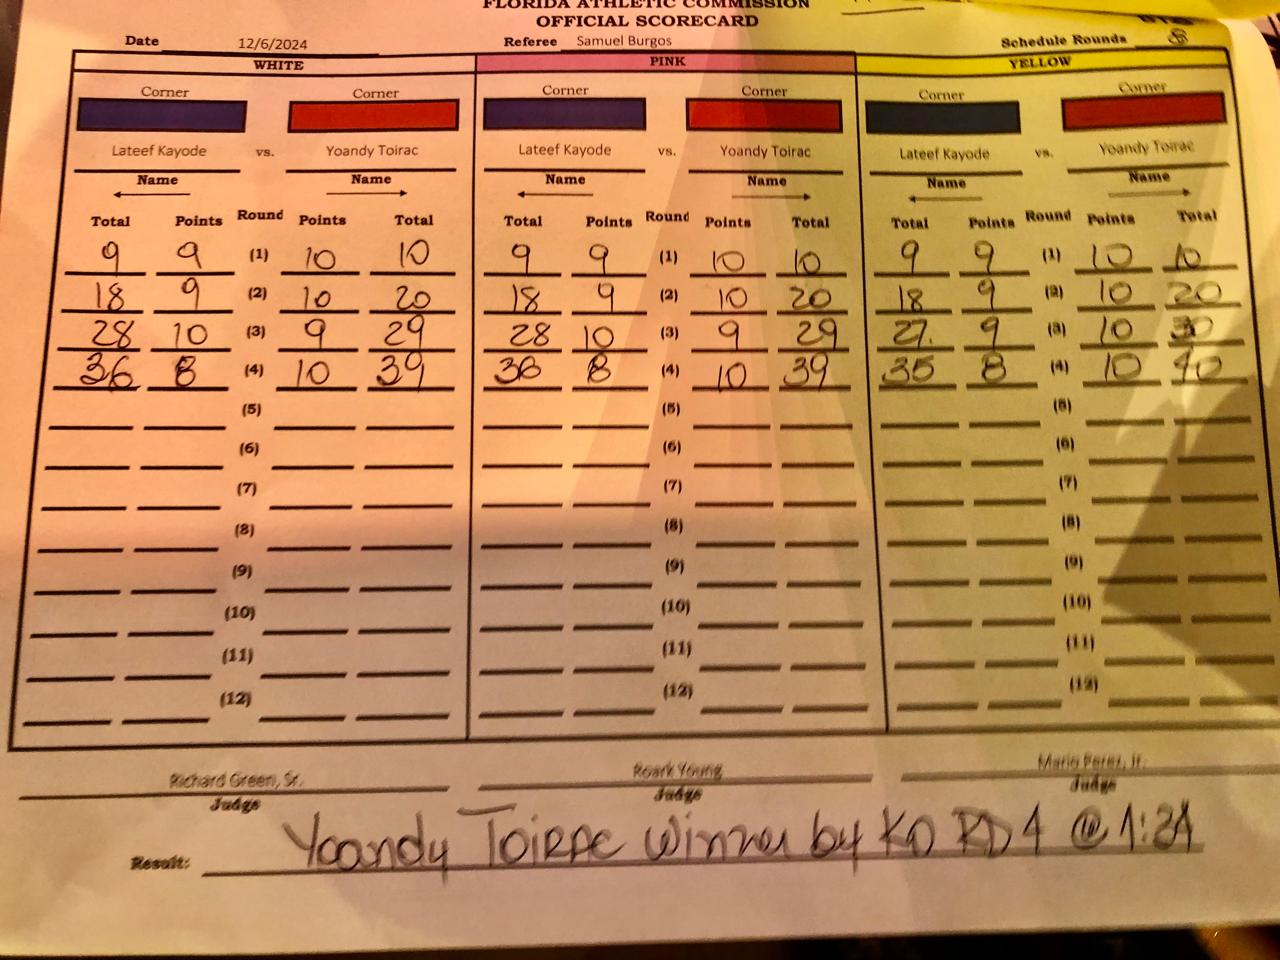 FLORIDA ATHLETIC COMMISSION
OFFICIAL SCORECARD
Date 12/6/2024 Referee Samuel Burgos Schedule Rounds 8
WHITE PINK YELLOW
Corner Corner Corner Corner Corner Corner
Lateef Kayode vs. Yoandy Toirac Lateef Kayode vs. Yoandy Toirac Lateef Kayode vs. Yoandy Toirac
Name Name Name Name Name Name
Total Points Round Points Total Total Points Round Points Total Total Points Round Points Total
9 9 (1) 10 10 9 9 (1) 10 10 9 9 (1) 10 10
18 9 (2) 10 20 18 9 (2) 10 20 18 9 (2) 10 20
28 10 (3) 9 29 28 10 (3) 9 29 27. 9 (3) 10 30
36 8 (4) 10 39 36 8 (4) 10 39 35 8 (4) 10 40
(5) (5) (5)
(6) (6) (6)
(7) (7) (7)
(8) (8) (8)
(9) (9) (9)
(10) (10) (10)
(11) (11) (11)
(12) (12) (12)
Richard Green, Sr. Roark Young Mario Perez, Jr.
Judge Judge Judge
Result: Yoandy Winner by KO RD 4 @ 1:24